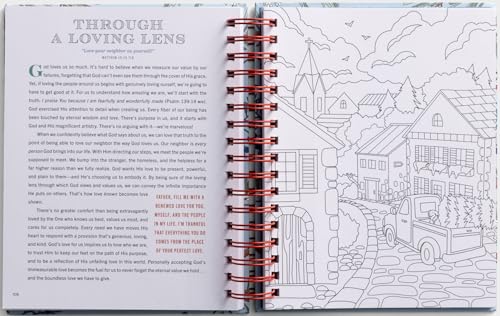 THROUGH
A LOVING LENS
"Love your neighbor as yourself."
MATTHEW 19:19 TLB
God loves us so much. It's hard to believe when we measure our value by our
failures, forgetting that God can't even see them through the cover of His grace.
Yet, if loving the people around us begins with genuinely loving ourself, we're going to
have to get good at it. For us to understand how amazing we are, we'll start with the
truth. I praise You because I am fearfully and wonderfully made (Psalm 139:14 NIV).
God exercised His attention to detail when creating us. Every fiber of our being has
been touched by eternal wisdom and love. There's purpose in us, and it starts with
God and His magnificent artistry. There's no arguing with it—we're marvelous!
When we confidently believe what God says about us, we can love that truth to the
point of being able to love our neighbor the way God loves us. Our neighbor is every
person God brings into our life. With Him directing our steps, we meet the people we're
supposed to meet. We bump into the stranger, the homeless, and the helpless for a
far higher reason than we fully realize. God wants His love to be present, powerful,
and plain to them—and He's choosing us to embody it. By being sure of the loving
lens through which God sees and values us, we can convey the infinite importance
He puts on others. That's how love becomes known
shown.
There's no greater comfort than being extravagantly
loved by the One who knows us best, values us most, and
cares for us completely. Every need we have moves His
heart to respond with a provision that's generous, loving,
and kind. God's love for us inspires us to love who we are,
to trust Him to keep our feet on the path of His purpose,
and to be a reflection of His unfailing love in this world. Personally accepting God's
immeasurable love becomes the fuel for us to never forget the eternal value we hold . . .
and the boundless love we have to give.
FATHER, FILL ME WITH A
RENEWED LOVE FOR YOU,
MYSELF, AND THE PEOPLE
IN MY LIFE. I'M THANKFUL
THAT EVERYTHING YOU DO
COMES FROM THE PLACE
OF YOUR PERFECT LOVE.